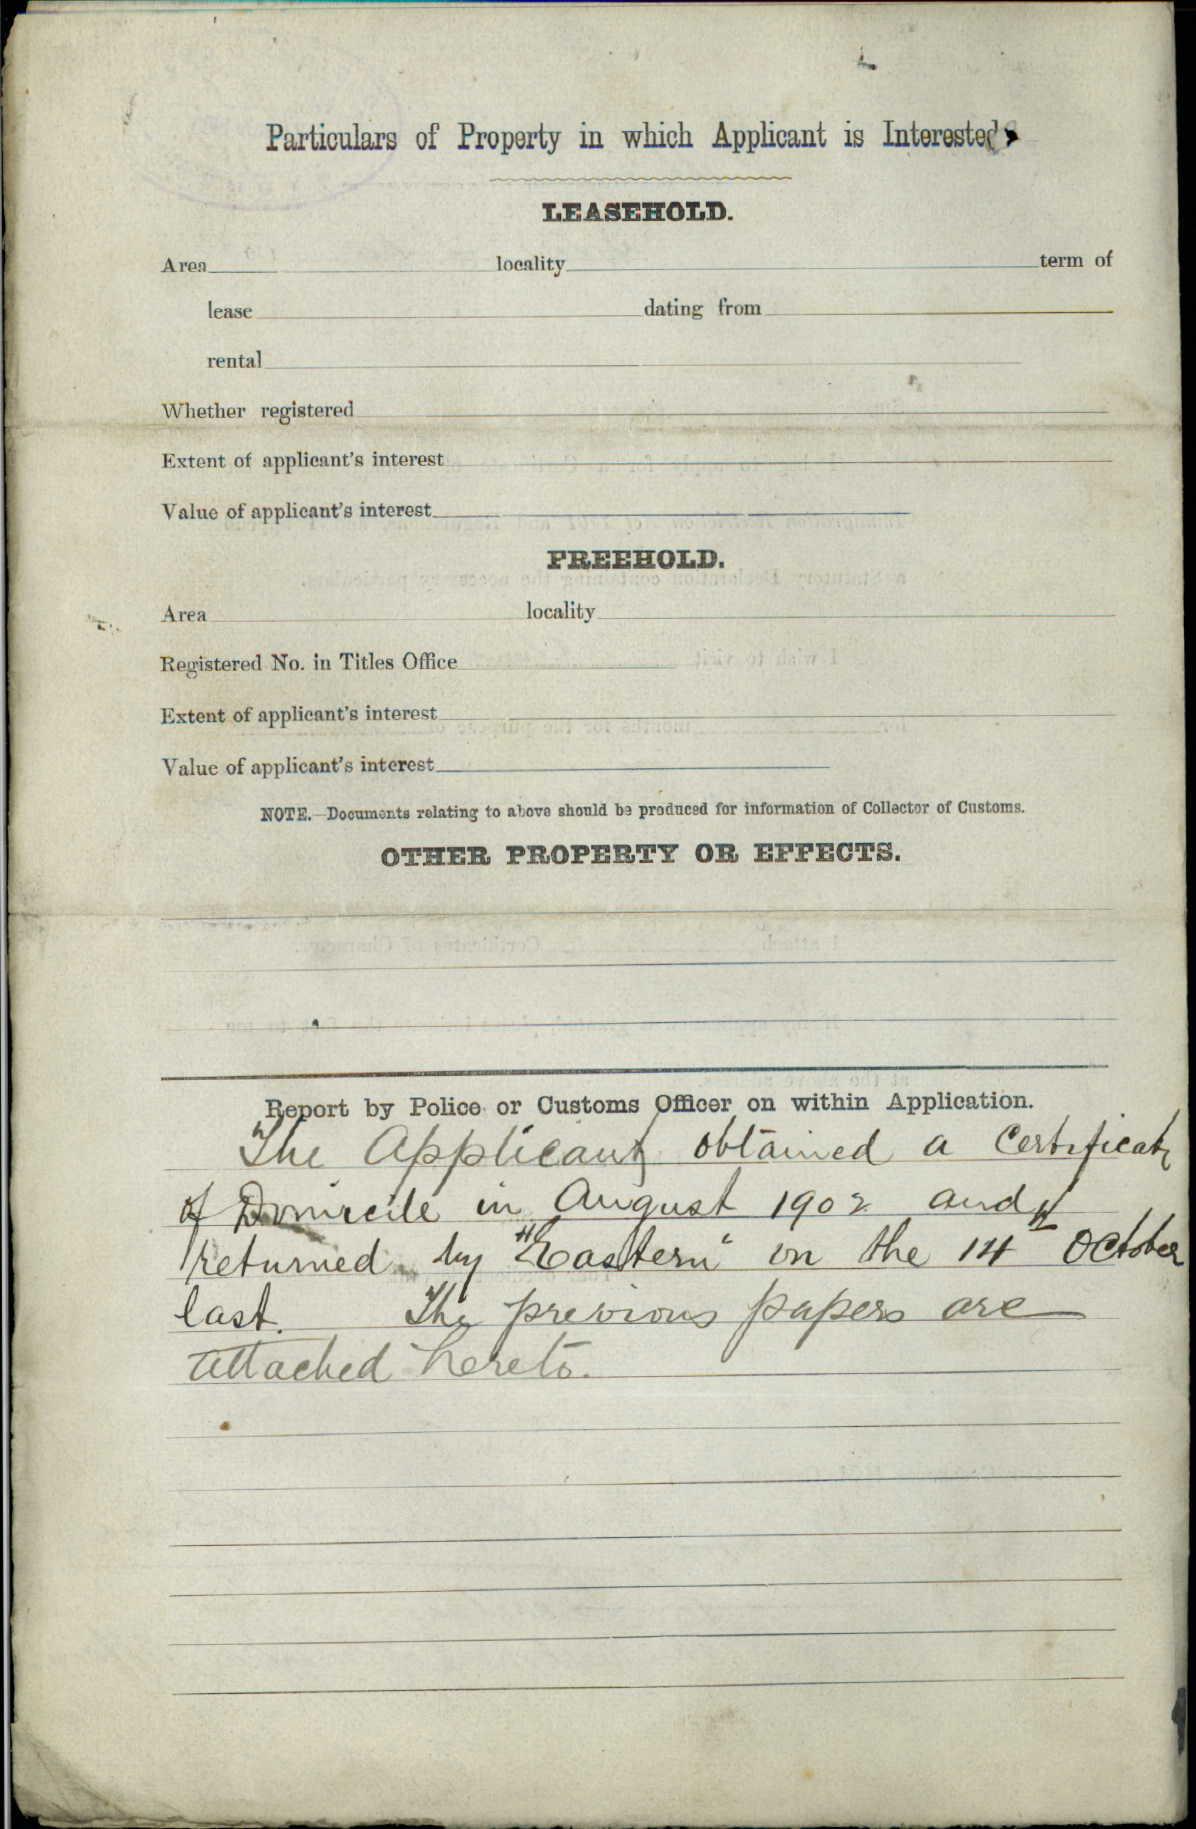 Particulars of Property in which Applicant is Interested
LEASEHOLD.
Area locality term of
lease dating from
rental
Whether registered
Extent of applicant's interest
Value of applicant's interest
FREEHOLD.
Area locality
Registered No. in Titles Office
Extent of applicant's interest
Value of applicant's interest
NOTE.—Documents relating to above should be produced for information of Collector of Customs.
OTHER PROPERTY OR EFFECTS.
Report by Police or Customs Officer on within Application.
The Applicant obtained a Certificate
of Domicile in August 1902 and
returned by "Eastern" on the 14th October
last. The previous papers are
attached hereto.